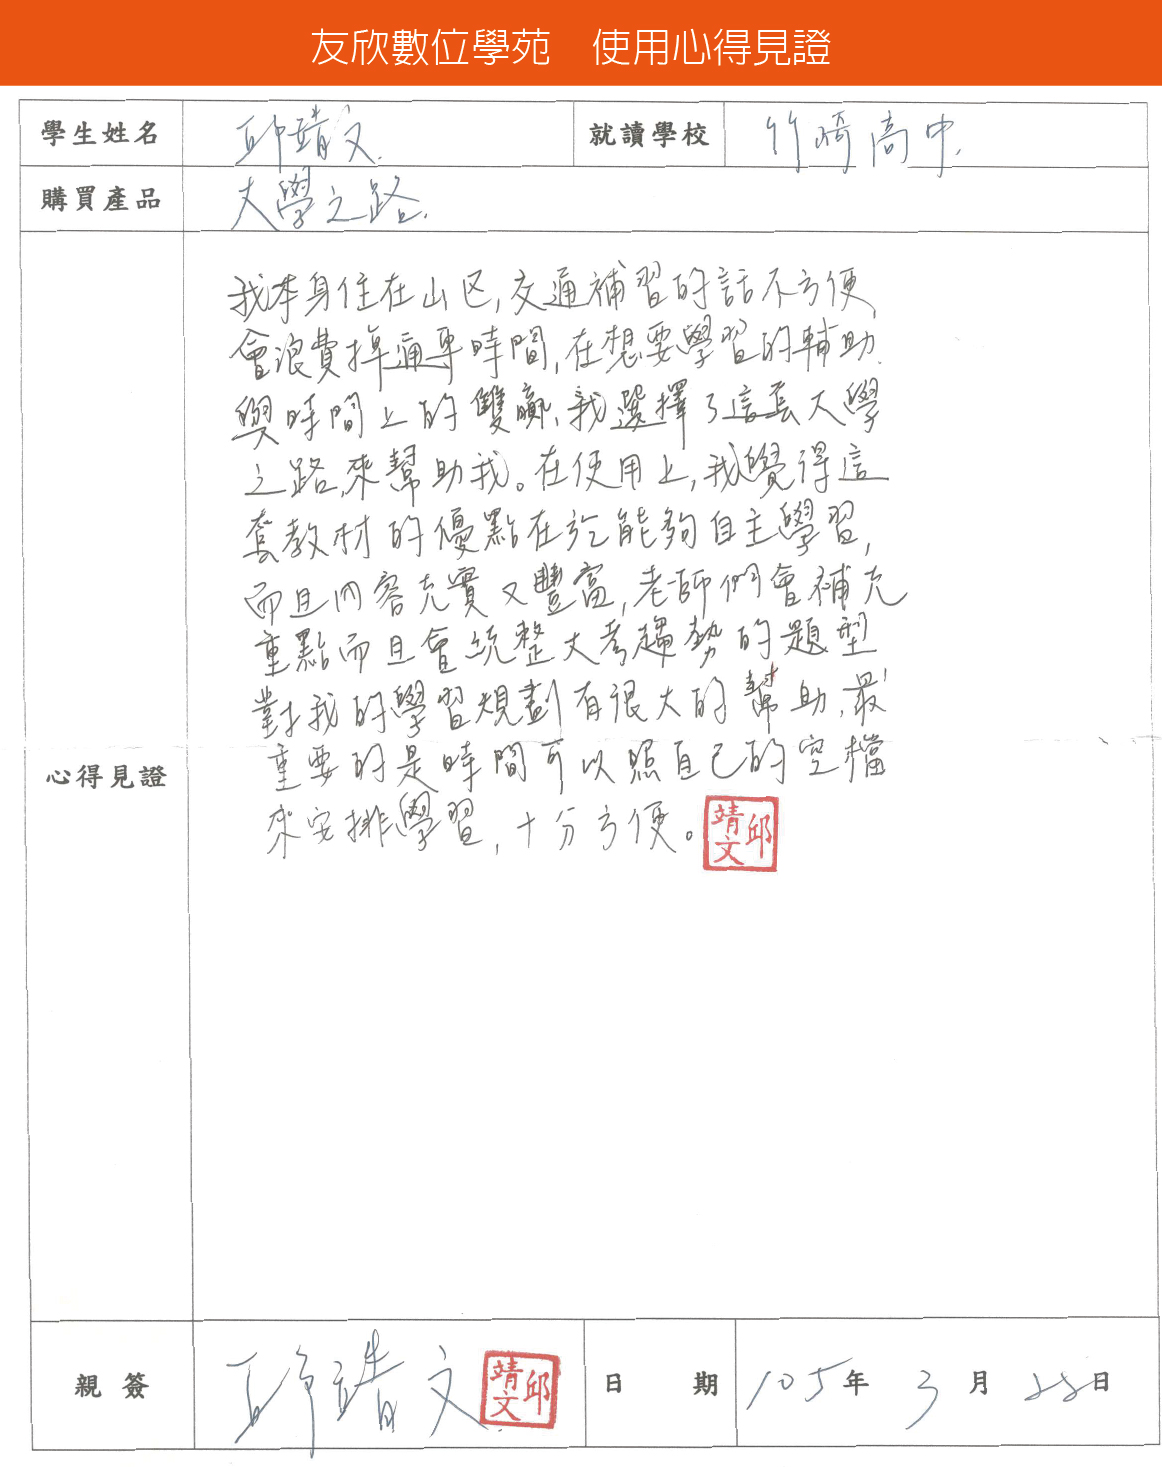 友欣數位學苑　使用心得見證
學生姓名 邱靖文. 就讀學校 竹崎高中.
購買產品 大學之路.
我本身住在山区,交通補習的話不方便
會浪費掉通車時間,在想要學習的輔助
與時間上的雙贏、我選擇了這套大學
之路,來幫助我。在使用上,我覺得這
套教材的優點在於能夠自主學習,
而且內容充實又豐富,老師們會補充
重點而且會統整大考趨勢的題型
對我的學習規劃有很大的幫助,最
重要的是時間可以照自己的空檔
來安排學習,十分方便。
邱靖文
心得見證
親簽 邱靖文 邱靖文 日期 105年3月28日